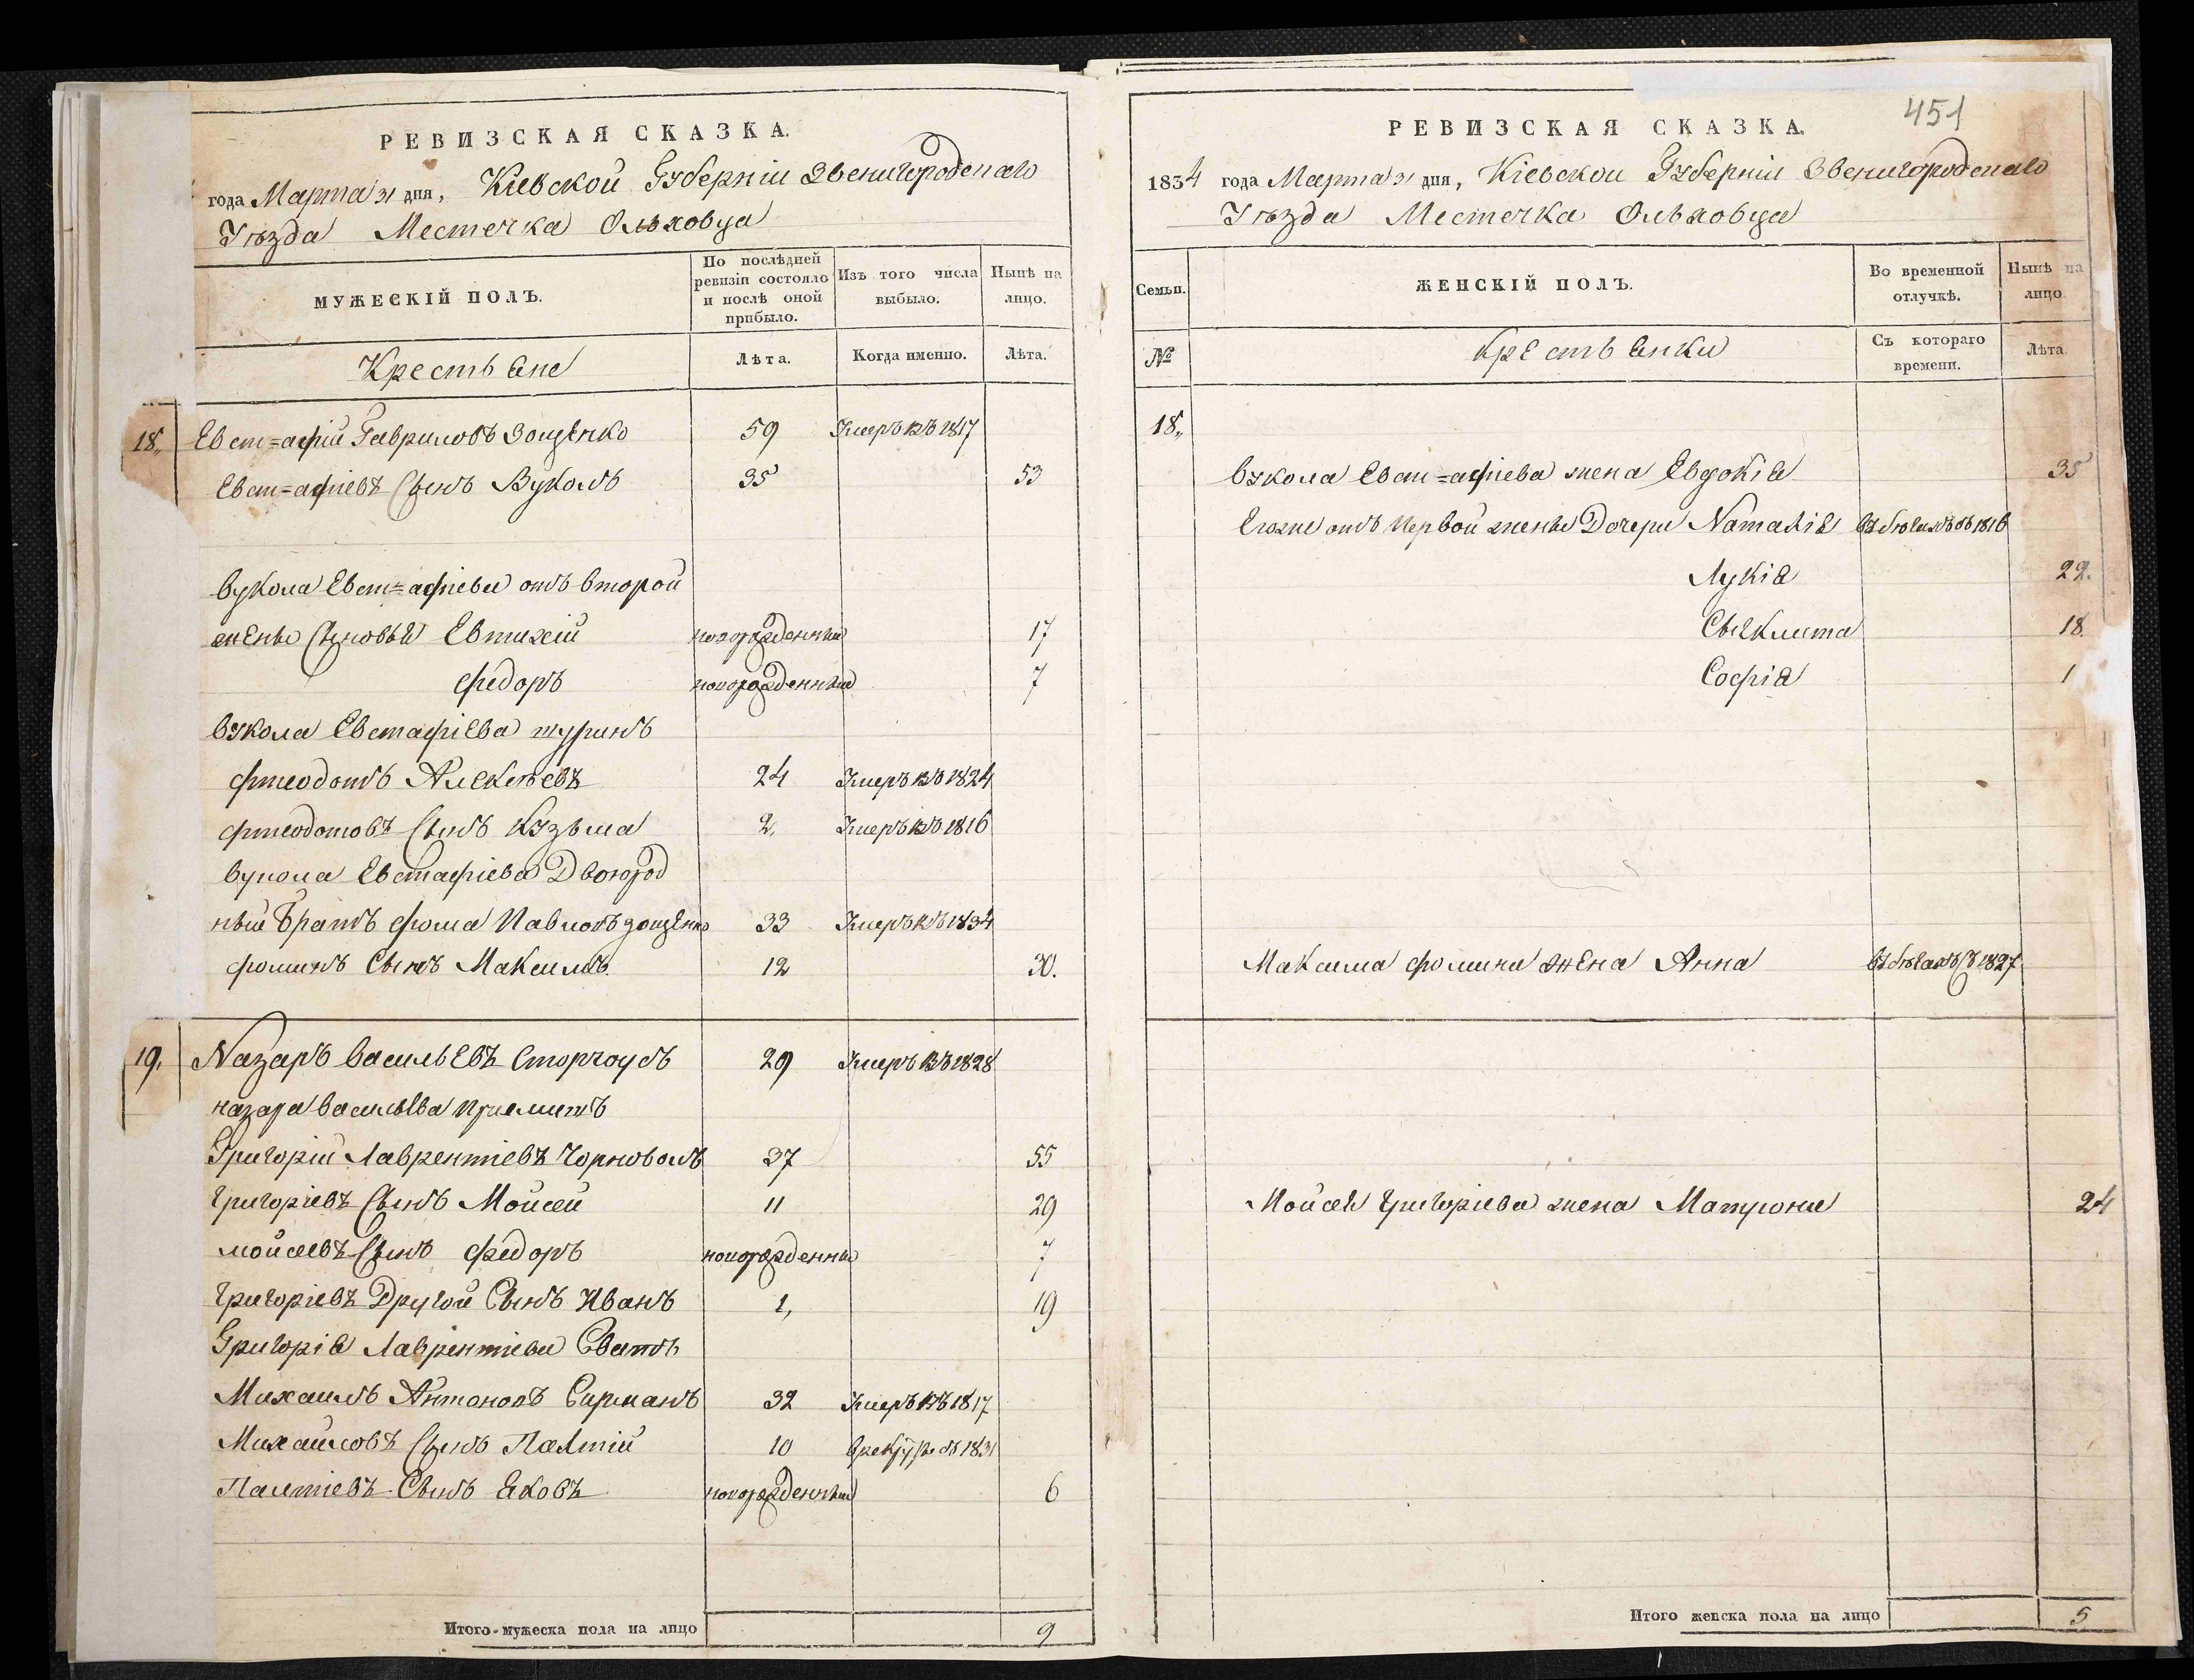 РЕВИЗСКАЯ СКАЗКА.
года Марта 31 дня, Кіевской Губерніи Звенигородскаго
Уѣзда Местечка Ольховца
МУЖЕСКІЙ ПОЛЪ.
По послѣдней ревизіи состояло и послѣ оной прибыло.
Изъ того числа выбыло.
Нынѣ на лицо.
Крестьяне
Лѣта.
Когда именно.
Лѣта.
18. Евстафій Гавриловъ Зощенко 59 Умеръ въ 1817
Евстафіевъ Сынъ Вуколъ 35 53
Вукола Евстафіева отъ второй
жены Сыновья Евтихій новорожденный 17
Федоръ новорожденный 7
Вукола Евстафіева шуринъ
Фтеодотъ Алексѣевъ 24 Умеръ въ 1824
Фтеодотовъ Сынъ Кузьма 2, Умеръ въ 1816
Вукола Евстафіева Двоюрод
ный Братъ Фома Павловъ Зощенко 33 Умеръ въ 1834
Фоминъ Сынъ Максимъ 12 30.
19. Назаръ Васильевъ Сторчоусъ 29 Умеръ въ 1828
Назара Васильева Приемитъ
Григорій Лаврентіевъ Чорноволъ 37 55
Григоріевъ Сынъ Мойсей 11 29
Мойсеевъ Сынъ Федоръ новорожденный 7
Григоріевъ Другой Сынъ Иванъ 1, 19
Григорія Лаврентіева Сватъ
Михаилъ Антоновъ Сирманъ 32 Умеръ въ 1817
Михайловъ Сынъ Палтій 10 1831
Палтіевъ Сынъ Яковъ новорожденный 6
Итого мужеска пола на лицо 9
451
РЕВИЗСКАЯ СКАЗКА.
1834 года Марта 31 дня, Кіевской Губерніи Звенигородскаго
Уѣзда Местечка Ольховца
Семьи.
ЖЕНСКІЙ ПОЛЪ.
Во временной отлучкѣ.
Нынѣ на лицо
№
Крестьянки
Съ котораго времени.
Лѣта.
18,
Вукола Евстафіева жена Евдокія 35
Егоже отъ Первой жены Дочери Наталія въ бѣгахъ съ 1816
Лукія 22.
Свеклита 18.
Софія 1
Максима Фомина жена Анна въ бѣгахъ съ 1827
Мойсея Григоріева жена Матрона 24
Итого женска пола на лицо 5